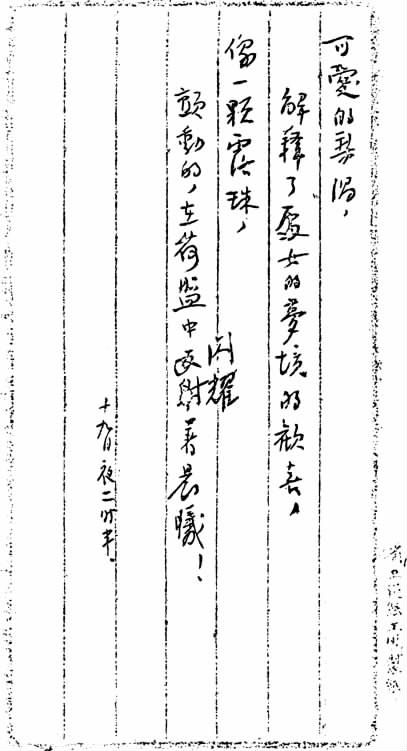 可愛的梨渦，
解釋了處女的夢境的歡喜，
像一顆露珠，
閃耀
顫動的，在荷盤中反射着晨曦！
十九日夜二時半。